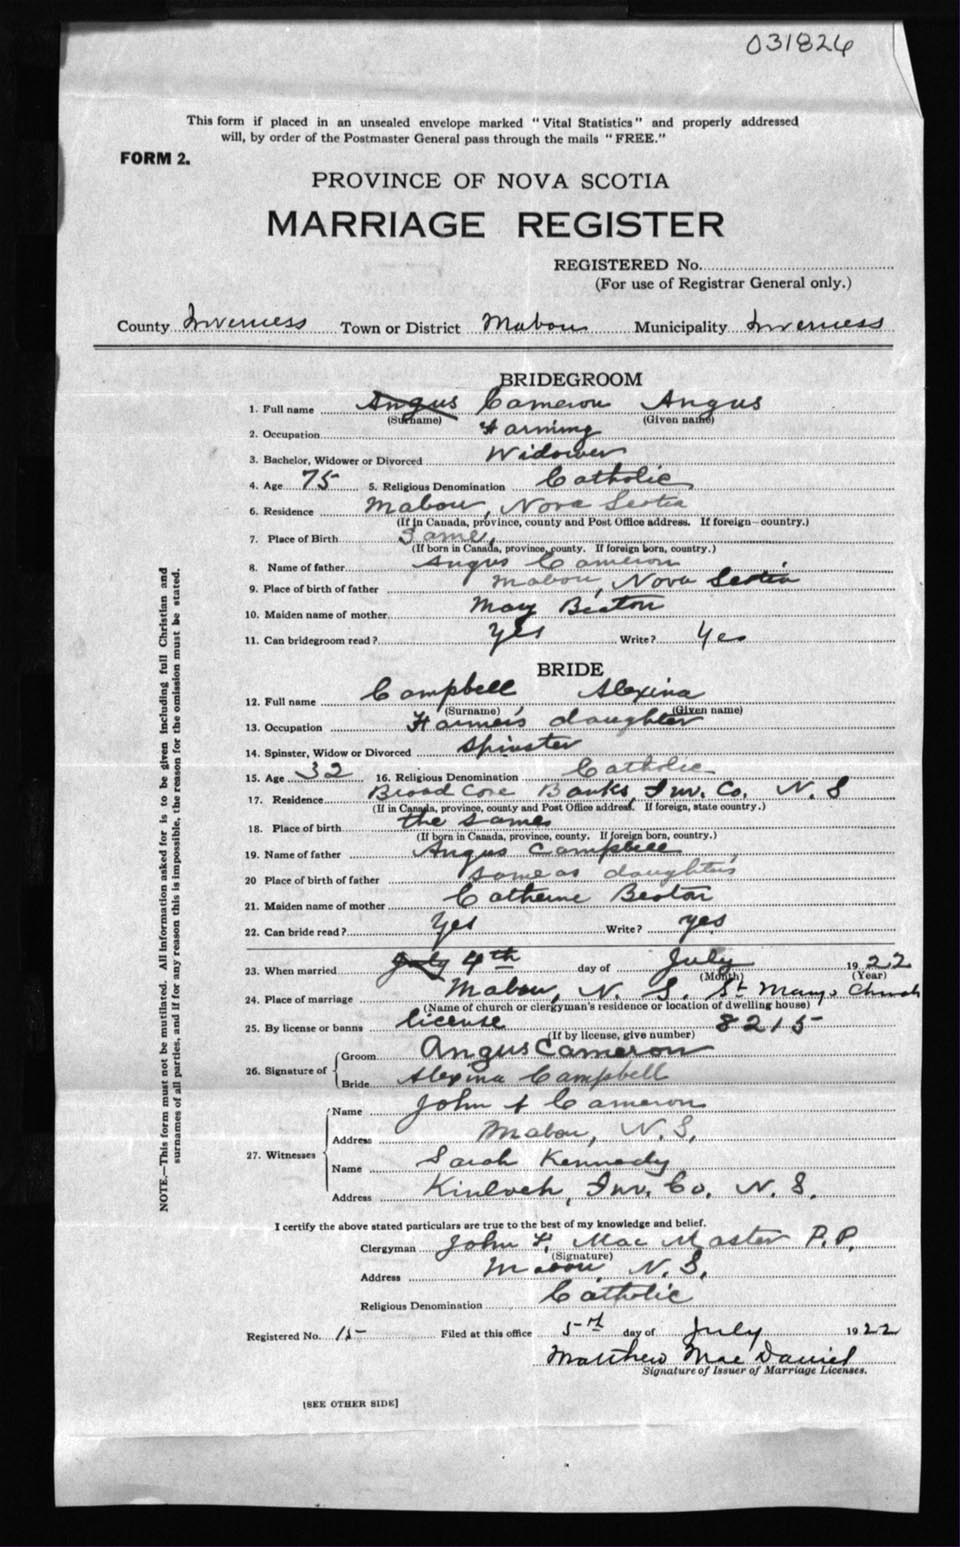 031826
This form if placed in an unsealed envelope marked "Vital Statistics" and properly addressed
will, by order of the Postmaster General pass through the mails "FREE."
FORM 2.
PROVINCE OF NOVA SCOTIA
MARRIAGE REGISTER
REGISTERED No.
(For use of Registrar General only.)
County Inverness Town or District Mabou Municipality Inverness
BRIDEGROOM
1. Full name Angus Cameron Angus
(Surname) (Given name)
2. Occupation Farming
3. Bachelor, Widower or Divorced Widower
4. Age 75 5. Religious Denomination Catholic
6. Residence Mabou, Nova Scotia
(If in Canada, province, county and Post Office address. If foreign—country.)
7. Place of Birth Same,
(If born in Canada, province, county. If foreign born, country.)
8. Name of father Angus Cameron
9. Place of birth of father Mabou, Nova Scotia
10. Maiden name of mother Mary Beaton
11. Can bridegroom read? Yes Write? Yes
BRIDE
12. Full name Campbell Alexina
(Surname) (Given name)
13. Occupation Farmer's daughter
14. Spinster, Widow or Divorced Spinster
15. Age 32 16. Religious Denomination Catholic
17. Residence Broad Cove Banks Inv. Co. N. S
(If in Canada, province, county and Post Office address. If foreign, state country.)
18. Place of birth the same
(If born in Canada, province, county. If foreign born, country.)
19. Name of father Angus Campbell
20 Place of birth of father same as daughter's
21. Maiden name of mother Catherine Beaton
22. Can bride read? Yes Write? yes
23. When married July 4th day of July 1922
(Month) (Year)
24. Place of marriage Mabou, N. S. St Mary's Church
(Name of church or clergyman's residence or location of dwelling house)
25. By license or banns license 8215
(If by license, give number)
26. Signature of Groom Angus Cameron
Bride Alexina Campbell
27. Witnesses
Name John A Cameron
Address Mabou, N.S.
Name Sarah Kennedy
Address Kinloch, Inv. Co. N. S.
I certify the above stated particulars are true to the best of my knowledge and belief.
Clergyman John F. Mac Master P.P.
(Signature)
Address Mabou N.S.
Religious Denomination Catholic
Registered No. 15 Filed at this office 5rd day of July 1922
Matthew Mac Daniel
Signature of Issuer of Marriage Licenses.
[SEE OTHER SIDE]
NOTE.—This form must not be mutilated. All information asked for is to be given including full Christian and
surnames of all parties, and if for any reason this is impossible, the reason for the omission must be stated.